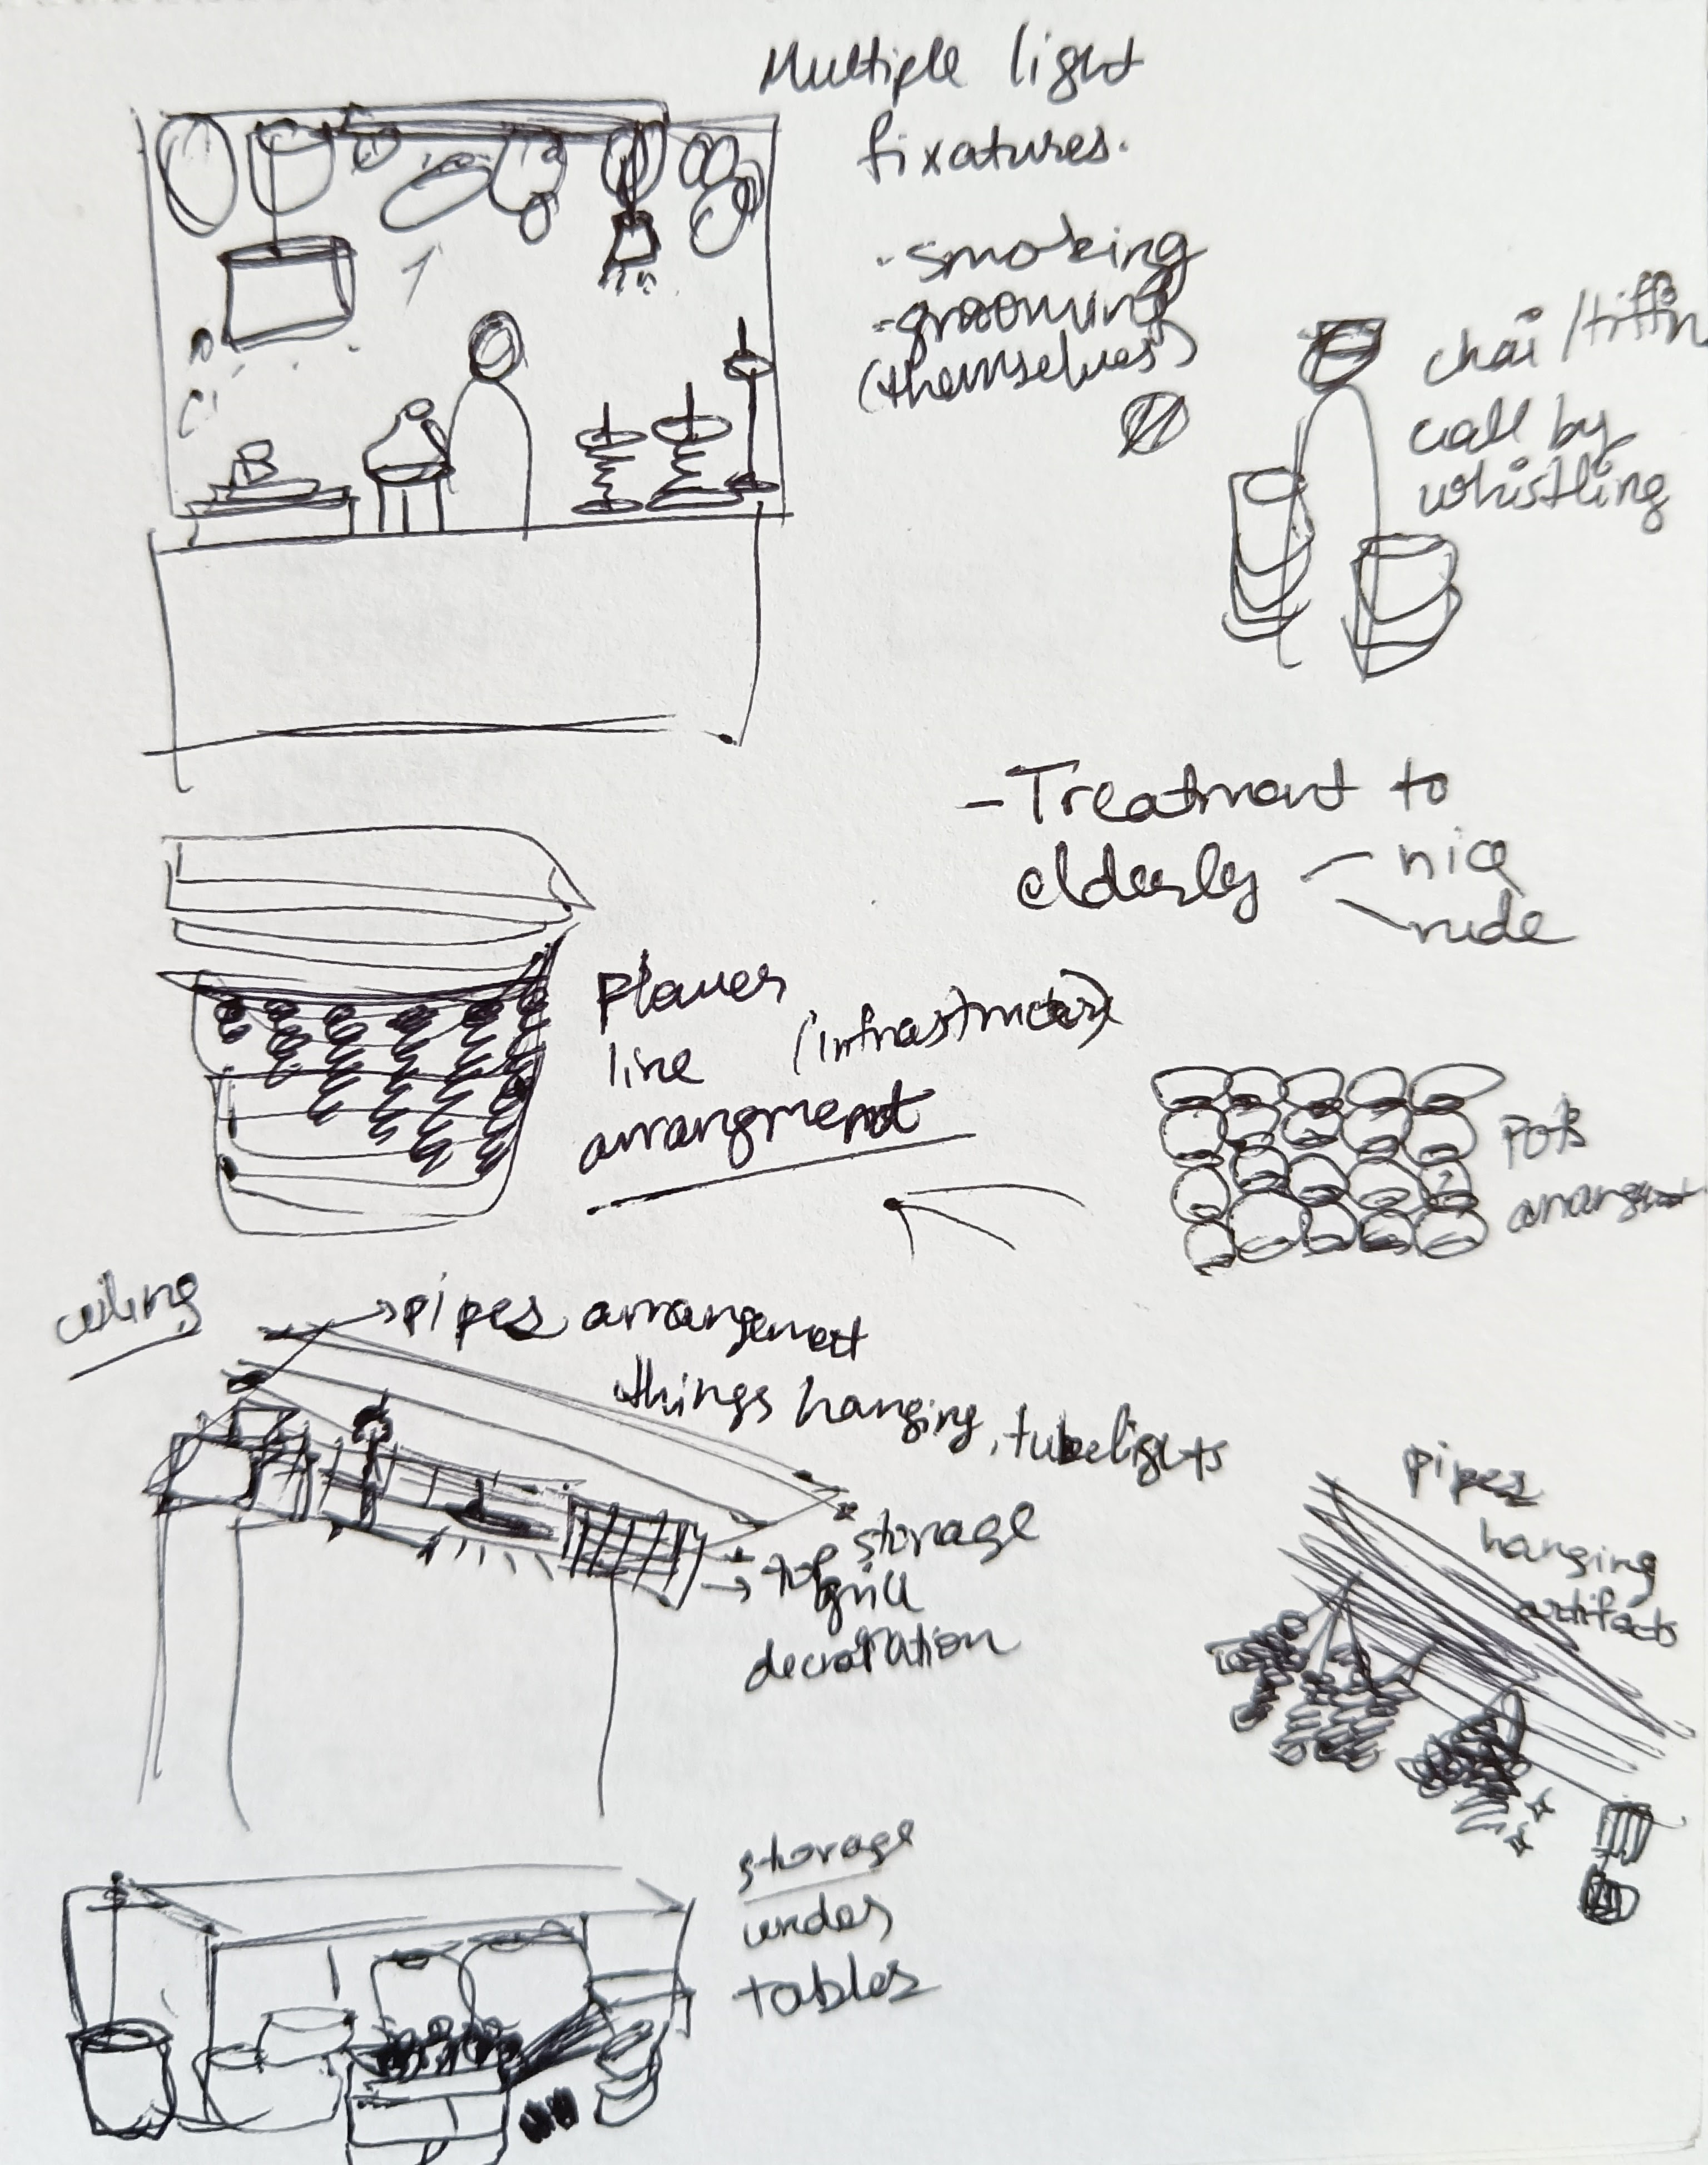 Multiple light
fixatures.
- smoking
- grooming
(themselves)
chai / tiffin
call by
whistling
- Treatment to
elderly - nice
- rude
(infrastructure)
line
arrangment
Pots
ceiling
→ pipes arrangement
things hanging, tubelights
storage
→ top
grill
decoration
pipes
hanging
artifacts
storage
under
tables